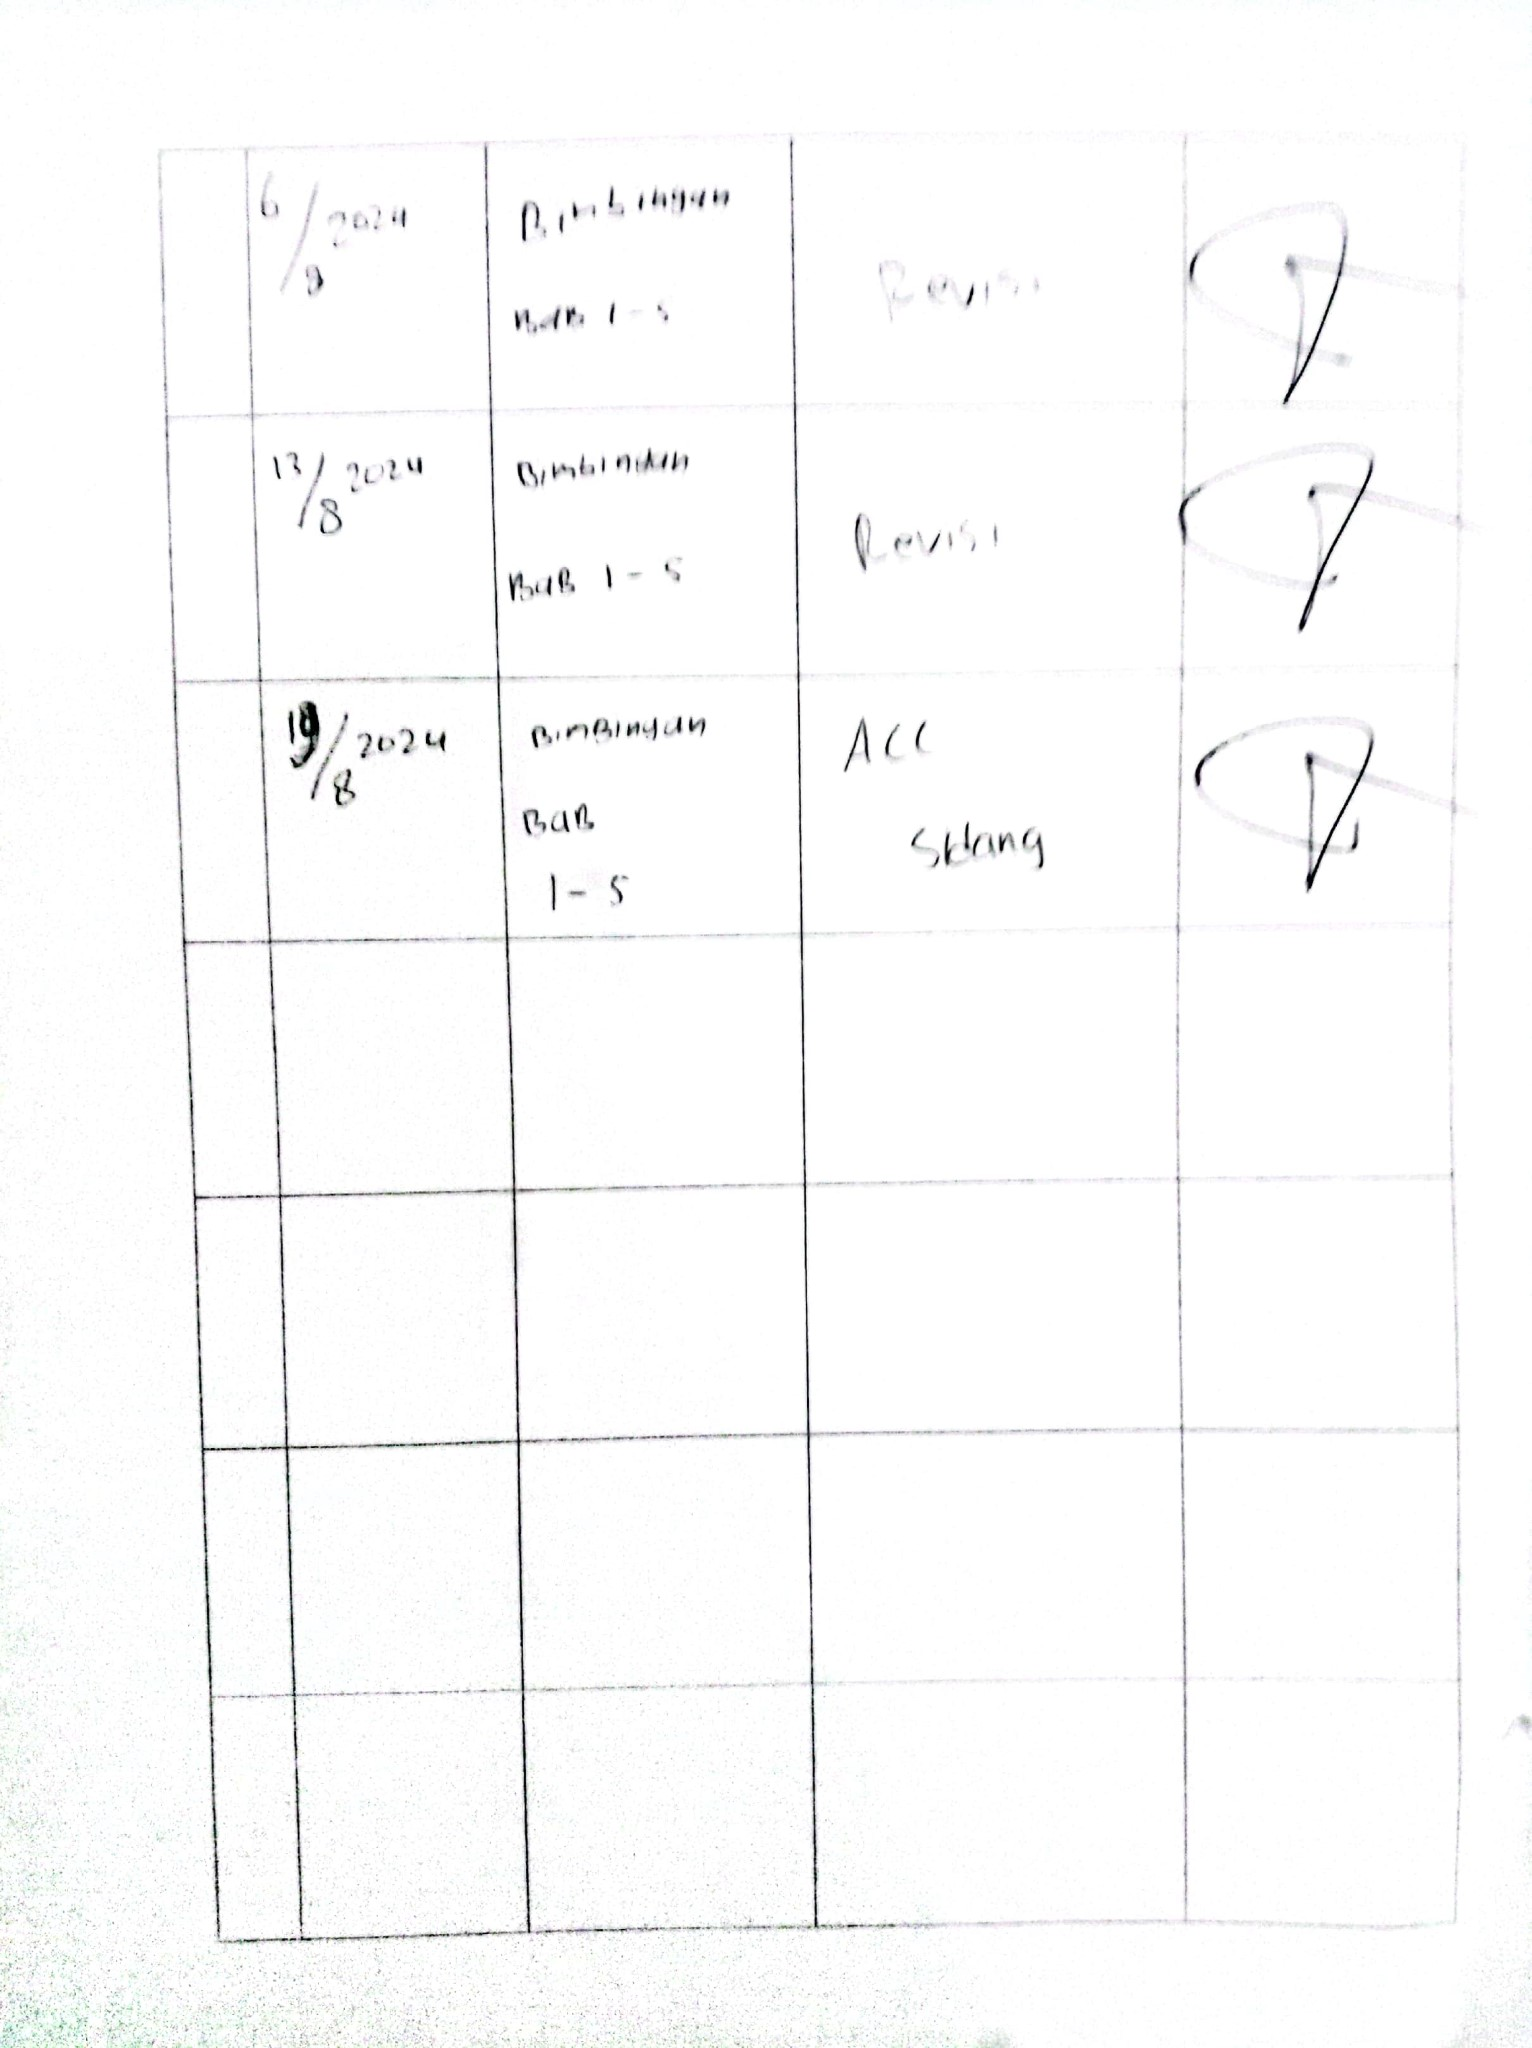 6/8 2024 Bimbingan
BAB 1-5
Revisi
13/8 2024 Bimbingan
BaB 1-5
Revisi
19/8 2024 BimBingan
BaB
1-5
ACC
Sidang